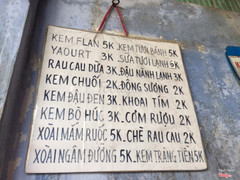 KEM FLAN 5K KEM TƯƠI BÁNH 5K
YAOURT 3K. SỮA TƯƠI LẠNH 5K
RAU CÂU DỪA 3K. ĐẬU NÀNH LẠNH 3K
KEM CHUỐI 2K. ĐÔNG SƯƠNG 2K
KEM ĐẬU ĐEN 3K. KHOAI TÍM 2K
KEM BÒ HÚC 3K. CƠM RƯỢU 2K
XOÀI MẮM RUỐC 5K. CHÈ RAU CÂU 2K
XOÀI NGÂM ĐƯỜNG 5K. KEM TRÀNG TIỀN 5K